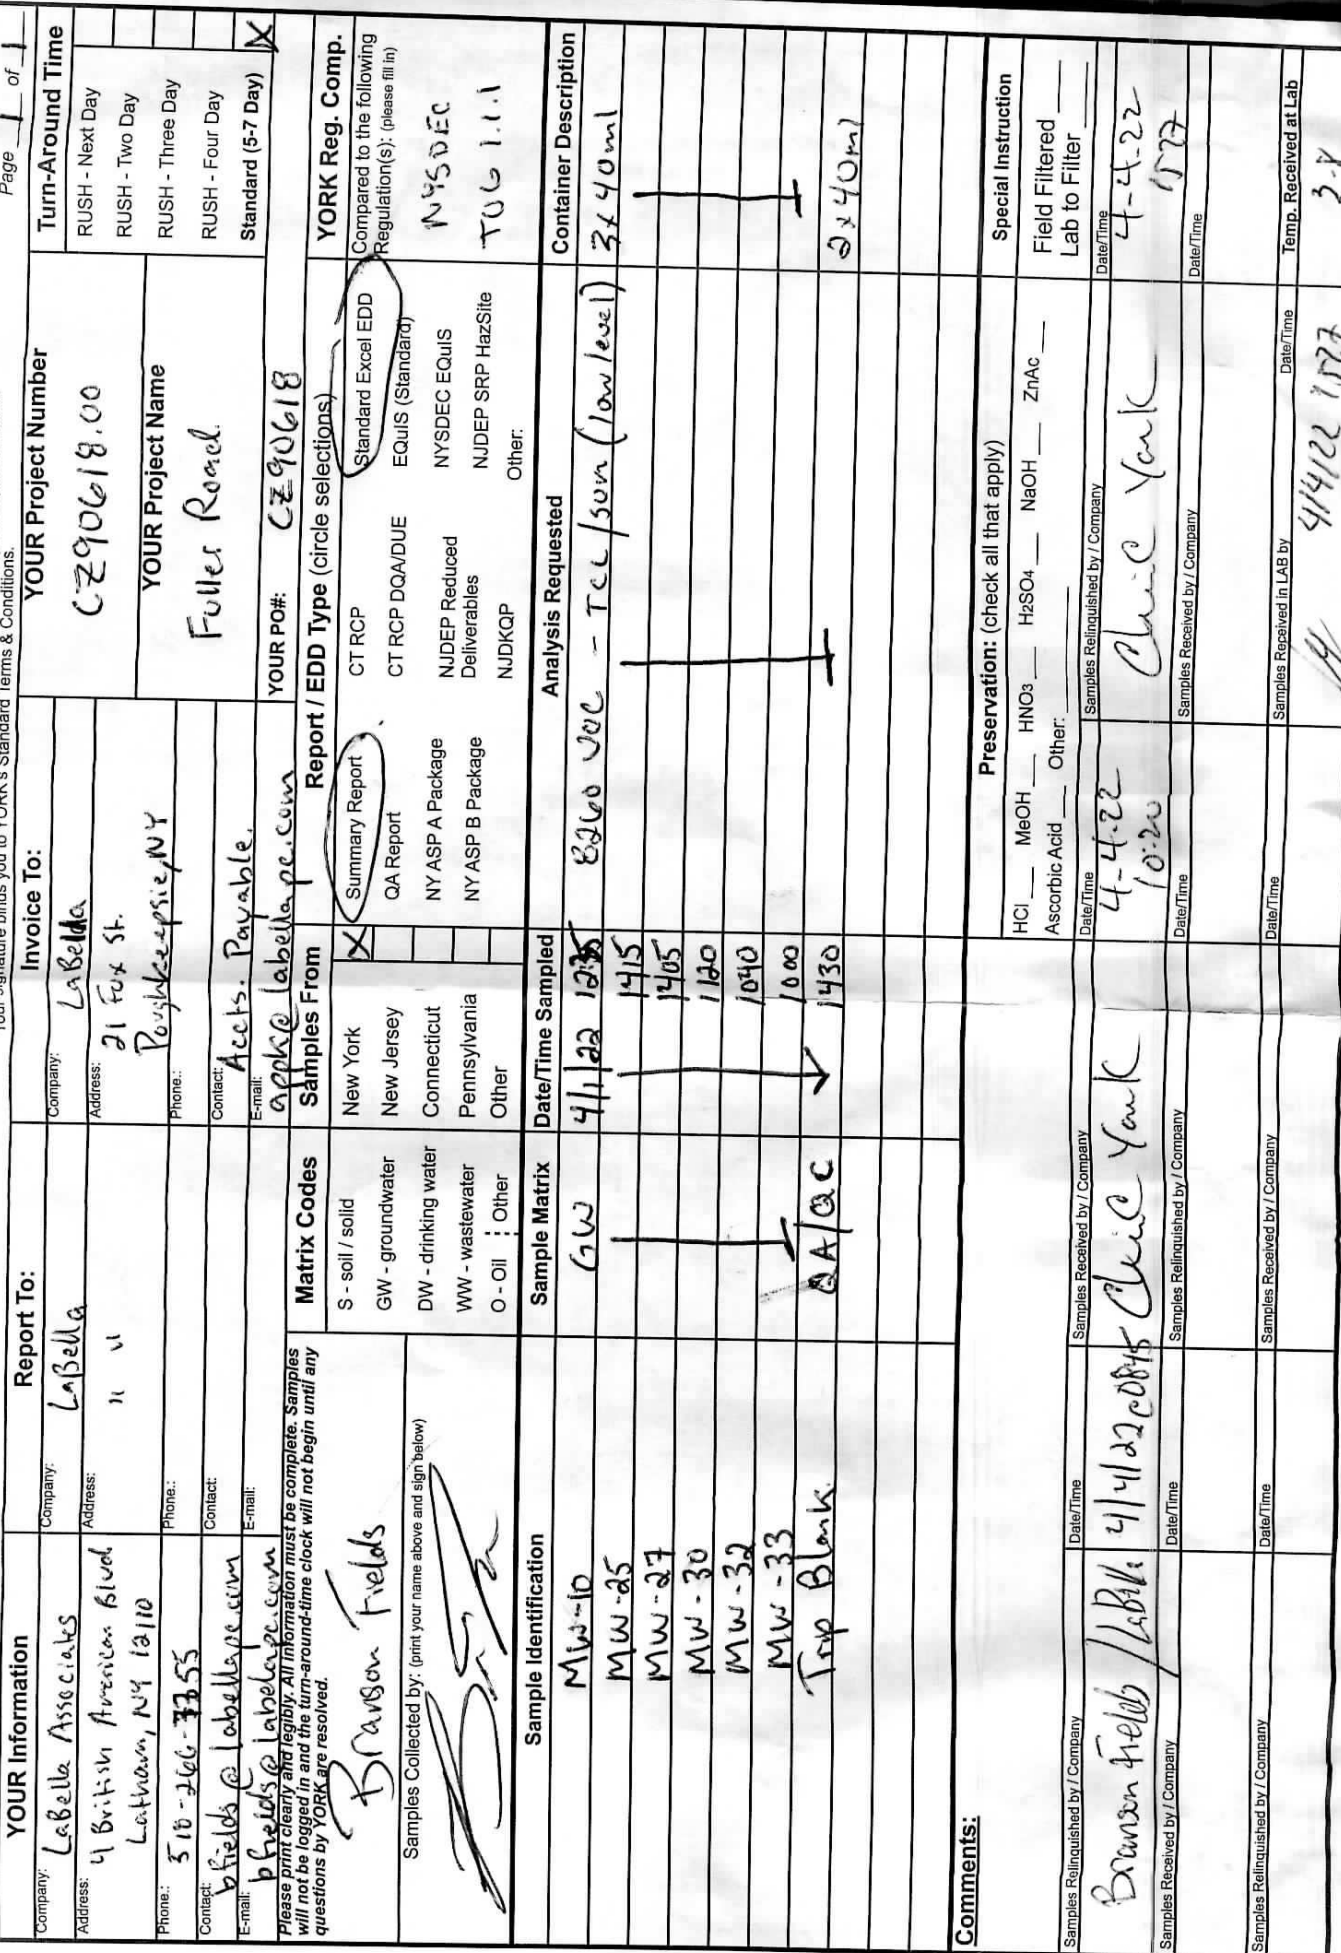 Page 1 of 1
YORK's Standard Terms & Conditions.
YOUR Information
Company: LaBella Associates
Address: 4 British American Blvd
Latham, NY 12110
Phone.: 518-266-7355
Contact: bfields@labellape.com
E-mail: bfields@labellape.com
Report To:
Company: LaBella
Address: " "
Phone.:
Contact:
E-mail:
Invoice To:
Company: LaBella
Address: 21 Fox St.
Poughkeepsie, NY
Phone.:
Contact: Accts. Payable.
E-mail: appk@labellape.com
YOUR Project Number
CZ90618.00
YOUR Project Name
Fuller Road
YOUR PO#: CZ90618
Turn-Around Time
RUSH - Next Day
RUSH - Two Day
RUSH - Three Day
RUSH - Four Day
Standard (5-7 Day) X
Please print clearly and legibly. All information must be complete. Samples
will not be logged in and the turn-around-time clock will not begin until any
questions by YORK are resolved.
Branson Fields
Samples Collected by: (print your name above and sign below)
Matrix Codes
S - soil / solid
GW - groundwater
DW - drinking water
WW - wastewater
O - Oil Other
Samples From
New York X
New Jersey
Connecticut
Pennsylvania
Other
Report / EDD Type (circle selections)
Summary Report CT RCP Standard Excel EDD
QA Report CT RCP DQA/DUE EQuIS (Standard)
NY ASP A Package NJDEP Reduced NYSDEC EQuIS
Deliverables
NY ASP B Package NJDKQP NJDEP SRP HazSite
Other:
YORK Reg. Comp.
Compared to the following
Regulation(s): (please fill in)
NYSDEC
TOG 1.1.1
Sample Identification Sample Matrix Date/Time Sampled Analysis Requested Container Description
MW-10 GW 4/1/22 8260 VOC - TCL (low level) 3x40ml
MW-25 1415
MW-27 1405
MW-30 1120
MW-32 1040
MW-33 1000
Trip Blank QA/QC 1430 2x40ml
Comments:
Preservation: (check all that apply)
HCl MeOH HNO3 H2SO4 NaOH ZnAc
Ascorbic Acid Other:
Special Instruction
Field Filtered
Lab to Filter
Samples Relinquished by / Company Date/Time Samples Received by / Company Date/Time Samples Relinquished by / Company Date/Time
Branson Fields / LaBella 4/4/22 0845 York 4-4-22 10:20 York 4-4-22 1527
Samples Received by / Company Date/Time Samples Relinquished by / Company Date/Time Samples Received by / Company Date/Time
Samples Relinquished by / Company Date/Time Samples Received by / Company Date/Time Samples Received in LAB by Date/Time Temp. Received at Lab
4/4/22 1527